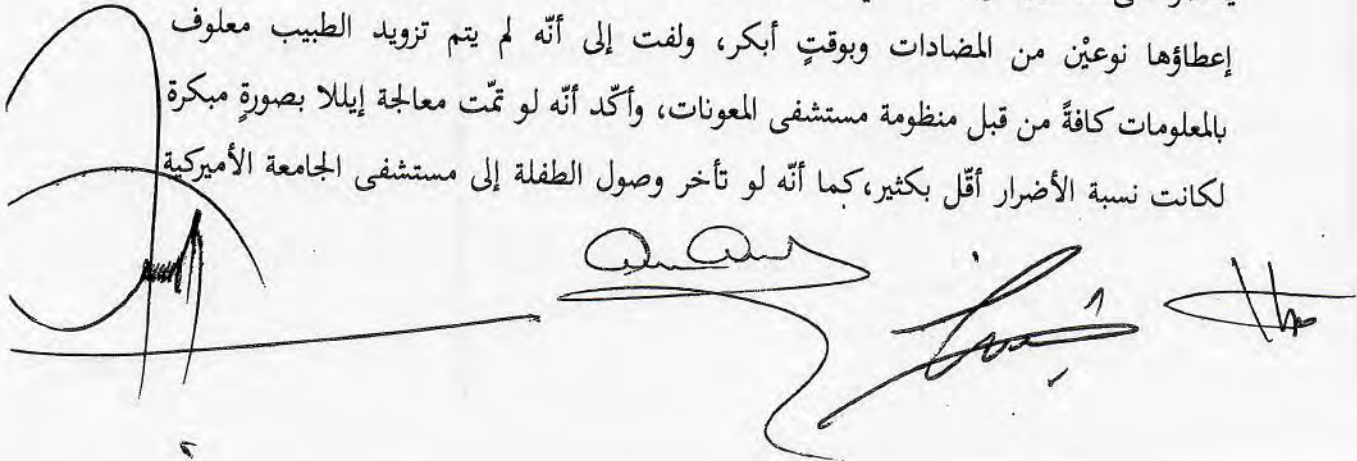 إعطاؤها نوعيْن من المضادات وبوقتٍ أبكر، ولفت إلى أنّه لم يتم تزويد الطبيب معلوف
بالمعلومات كافةً من قبل منظومة مستشفى المعونات، وأكّد أنّه لو تمّت معالجة إيللا بصورةٍ مبكرة
لكانت نسبة الأضرار أقّل بكثير، كما أنّه لو تأخر وصول الطفلة إلى مستشفى الجامعة الأميركية